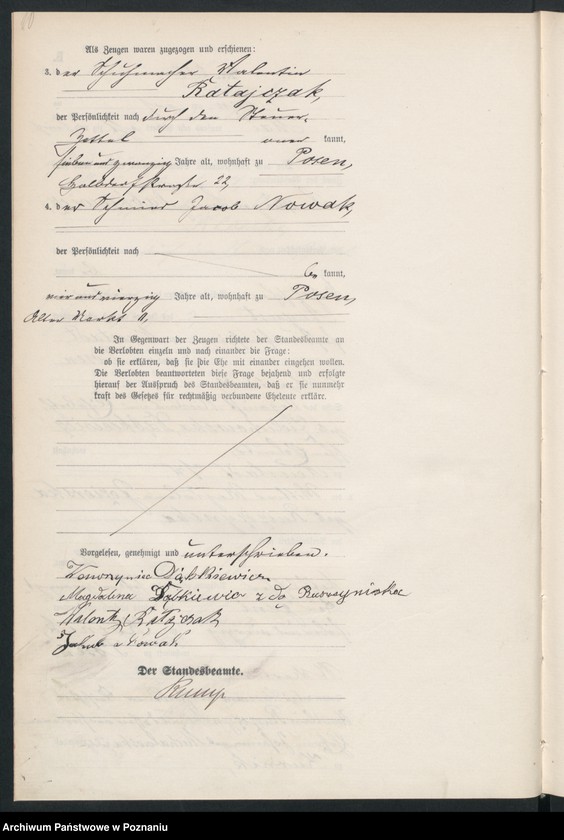 Als Zeugen waren zugezogen und erschienen:
3. der Schuhmacher Valentin
Ratajczak,
der Persönlichkeit nach durch den Steuer-
Zettel aner kannt,
sieben und zwanzig Jahre alt, wohnhaft zu Posen,
Halbdorfstraße 22,
4. der Schmied Jacob Nowak,
der Persönlichkeit nach
be kannt,
vier und vierzig Jahre alt, wohnhaft zu Posen,
Alter Markt 11,
In Gegenwart der Zeugen richtete der Standesbeamte an
die Verlobten einzeln und nach einander die Frage:
ob sie erklären, daß sie die Ehe mit einander eingehen wollen.
Die Verlobten beantworteten diese Frage bejahend und erfolgte
hierauf der Ausspruch des Standesbeamten, daß er sie nunmehr
kraft des Gesetzes für rechtmäßig verbundene Eheleute erkläre.
Vorgelesen, genehmigt und unterschrieben.
Wawrzyniec
Magdalena z do
Ratajczak
Jakub Nowak
Der Standesbeamte.
Archiwum Państwowe w Poznaniu